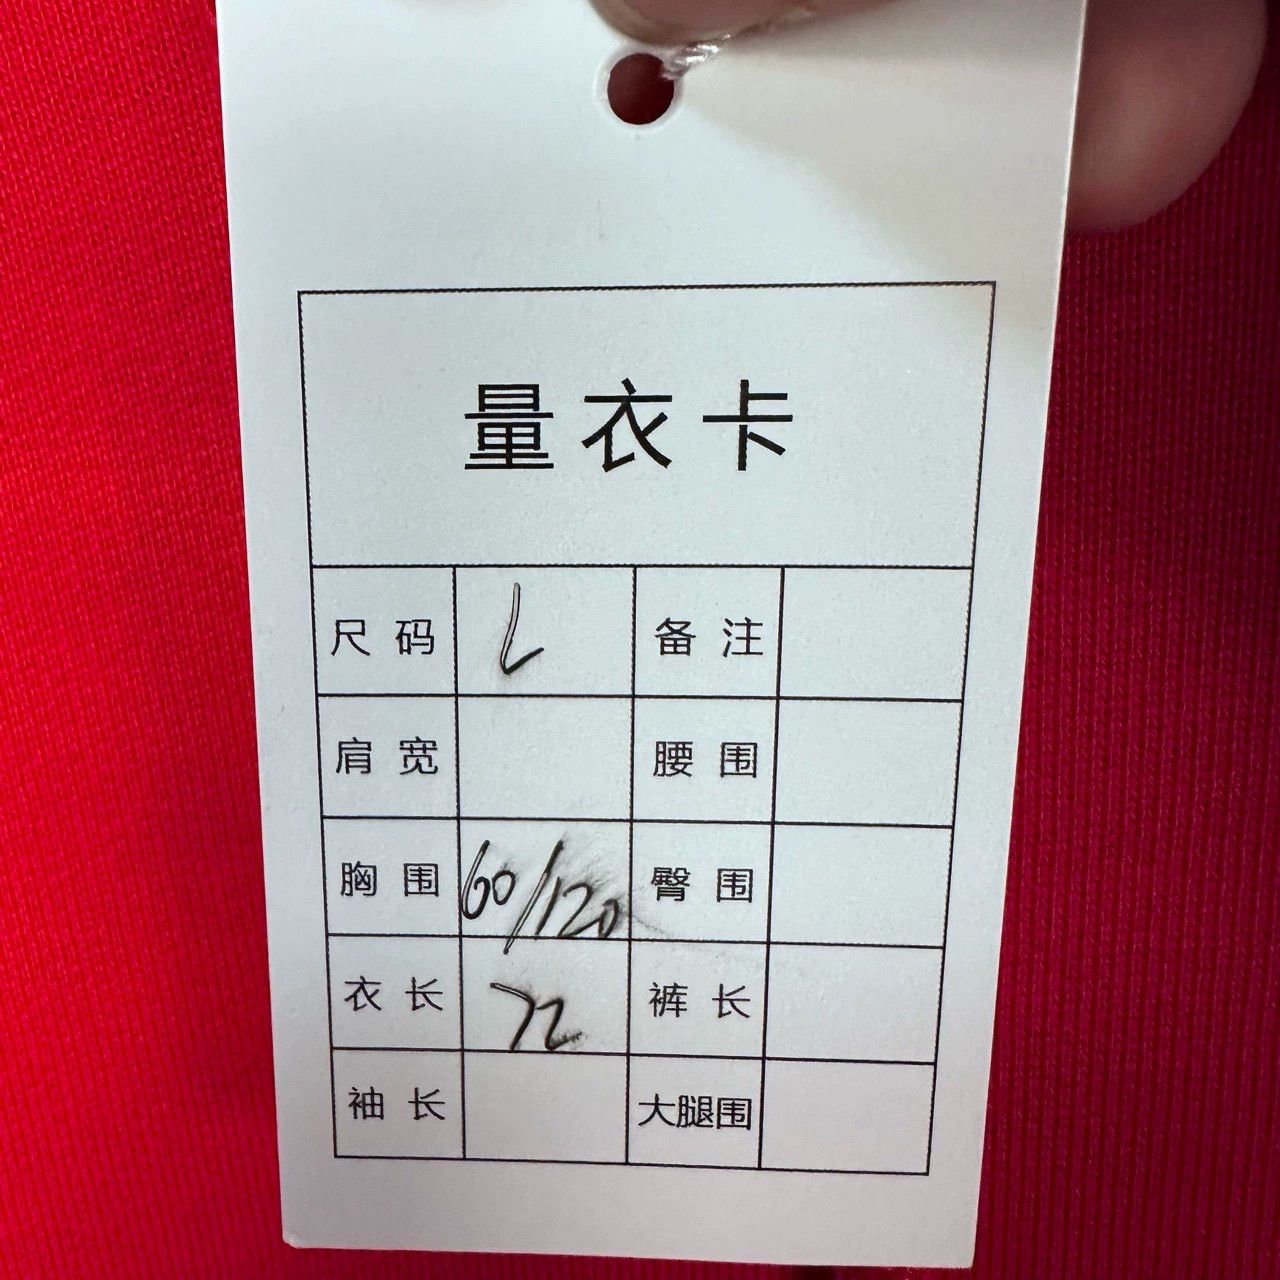 量衣卡
尺码 L 备注
肩宽 腰围
胸围 60/120 臀围
衣长 72 裤长
袖长 大腿围